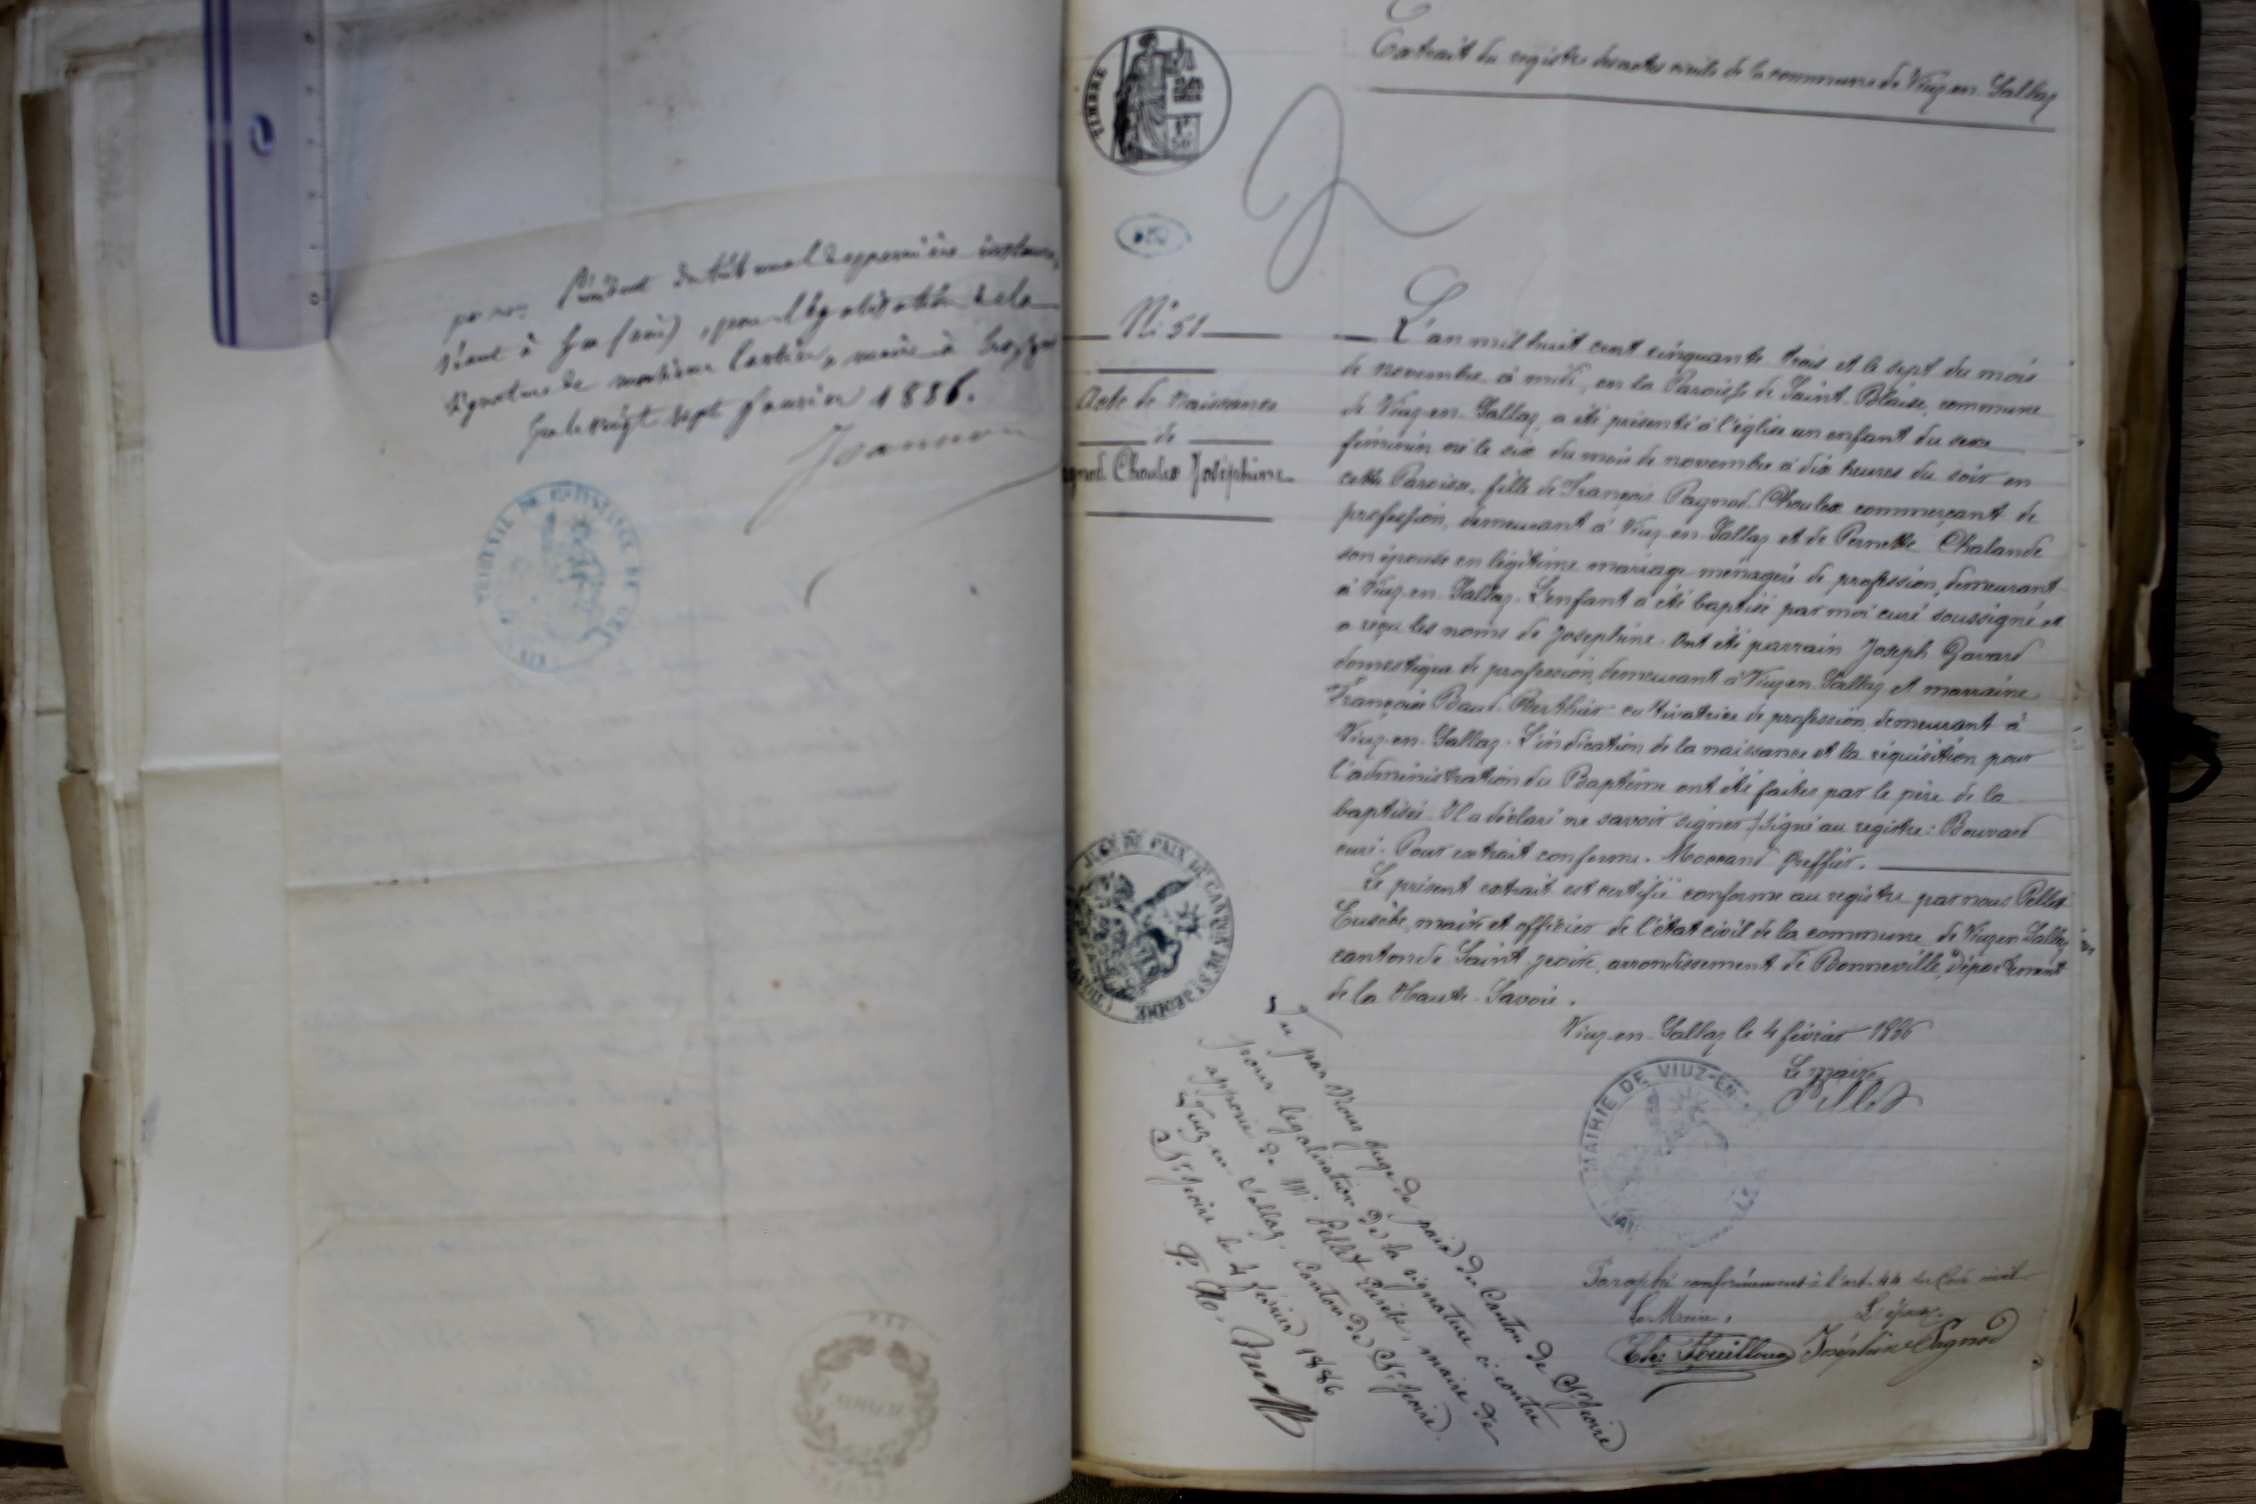 par nous Président du tribunal de première instance,
séant à Gex (Ain), pour légalisation de la
signature de monsieur Cartier, maire à
Gex le vingt sept février 1886.
TRIBUNAL DE 1ère INSTANCE DE GEX
TIMBRE
Extrait du registre des actes civils de la commune de Viuz-en-Sallaz
N° 51
Acte de Naissance
de
Pagnod Choulex Joséphine
L'an mil huit cent cinquante trois et le sept du mois
de novembre à midi, en la Paroisse de Saint-Blaise, commune
de Viuz-en-Sallaz, a été présenté à l'église un enfant du sexe
féminin né le six du mois de novembre à dix heures du soir en
cette Paroisse, fille de François Pagnod Choulex commerçant de
profession, demeurant à Viuz-en-Sallaz et de Pernette Chalande
son épouse en légitime mariage ménagère de profession, demeurant
à Viuz-en-Sallaz. L'enfant a été baptisé par moi curé soussigné et
a reçu les noms de Joséphine. Ont été parrain Joseph Gavard
domestique de profession, demeurant à Viuz-en-Sallaz et marraine
Françoise Baud-Berthier cultivatrice de profession, demeurant à
Viuz-en-Sallaz. L'indication de la naissance et la réquisition pour
l'administration du Baptême ont été faites par le père de la
baptisée. Il a déclaré ne savoir signer. Signé au registre: Bouvard
curé. Pour extrait conforme. Morrand Greffier.
Le présent extrait est certifié conforme au registre par nous Pellet
Eusèbe, maire et officier de l'état civil de la commune de Viuz en Sallaz
canton de Saint-Jeoire, arrondissement de Bonneville, département
de la Haute-Savoie.
Viuz-en-Sallaz le 4 février 1886
Le maire
Pellet
MAIRIE DE VIUZ-EN
JUGE DE PAIX DU CANTON DE ST JEOIRE
Vu par Nous Juge de paix du Canton de St Jeoire
pour légalisation de la signature ci-contre
apposée de Mr Pellet Eusèbe, maire de
Viuz en Sallaz, Canton de St Jeoire.
St Jeoire le 4 février 1886
Paraphé conformément à l'art. 44 du Code civil
Le Maire, L'épouse
Joséphine Pagnod